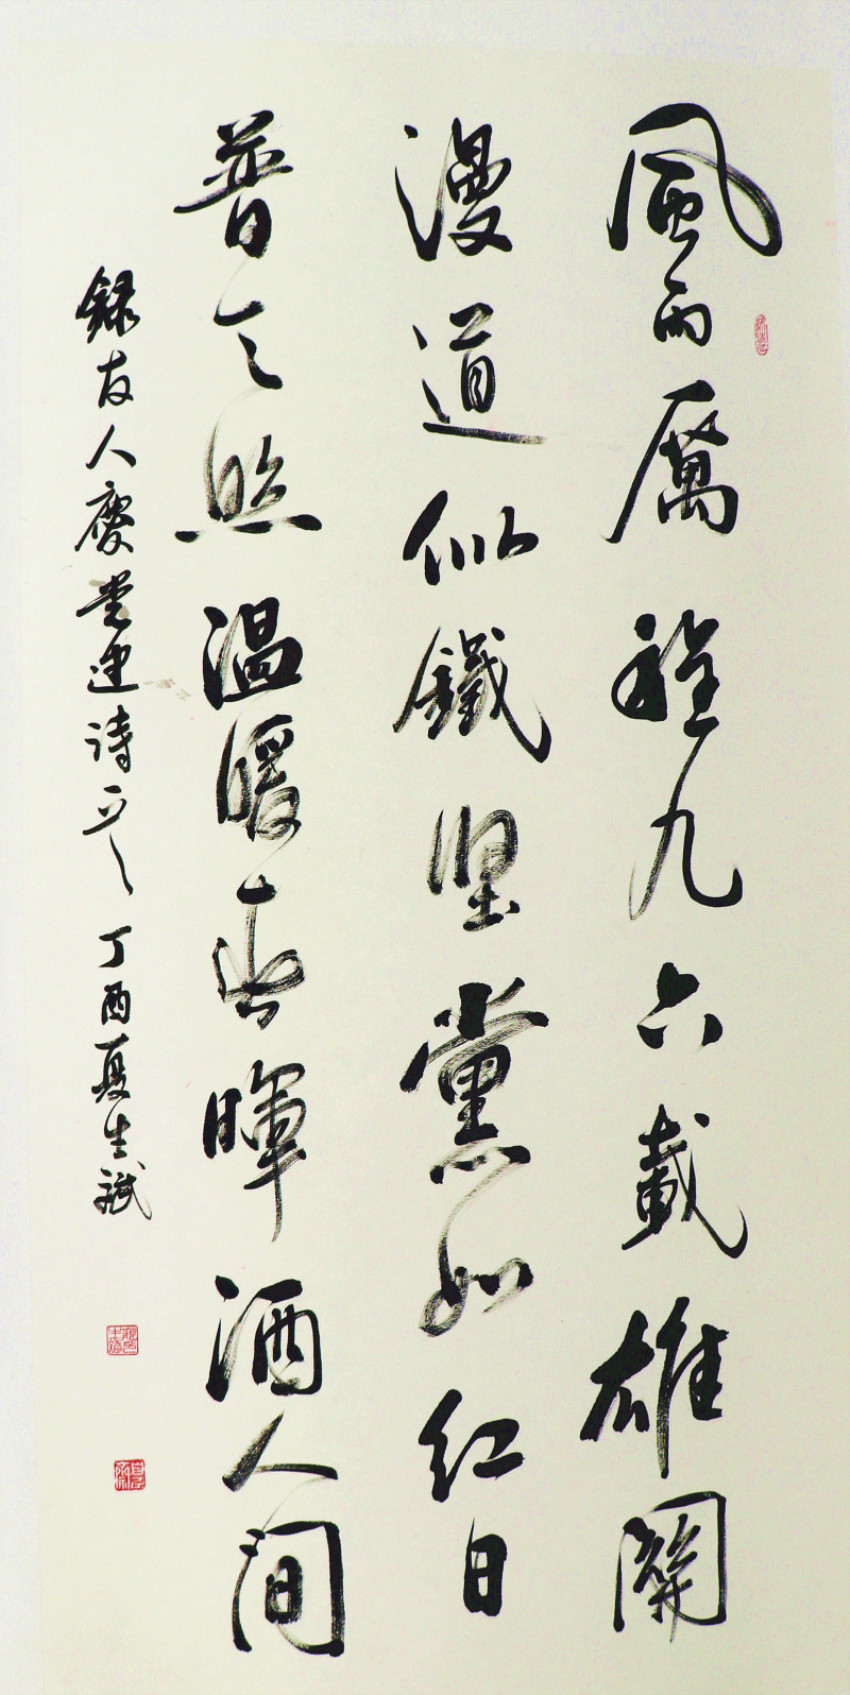 風雨厲程九六載雄關
漫道似鐵堅黨如紅日
普天照溫暖春暉洒人间
錄友人慶堂建詩 丁酉夏生斌